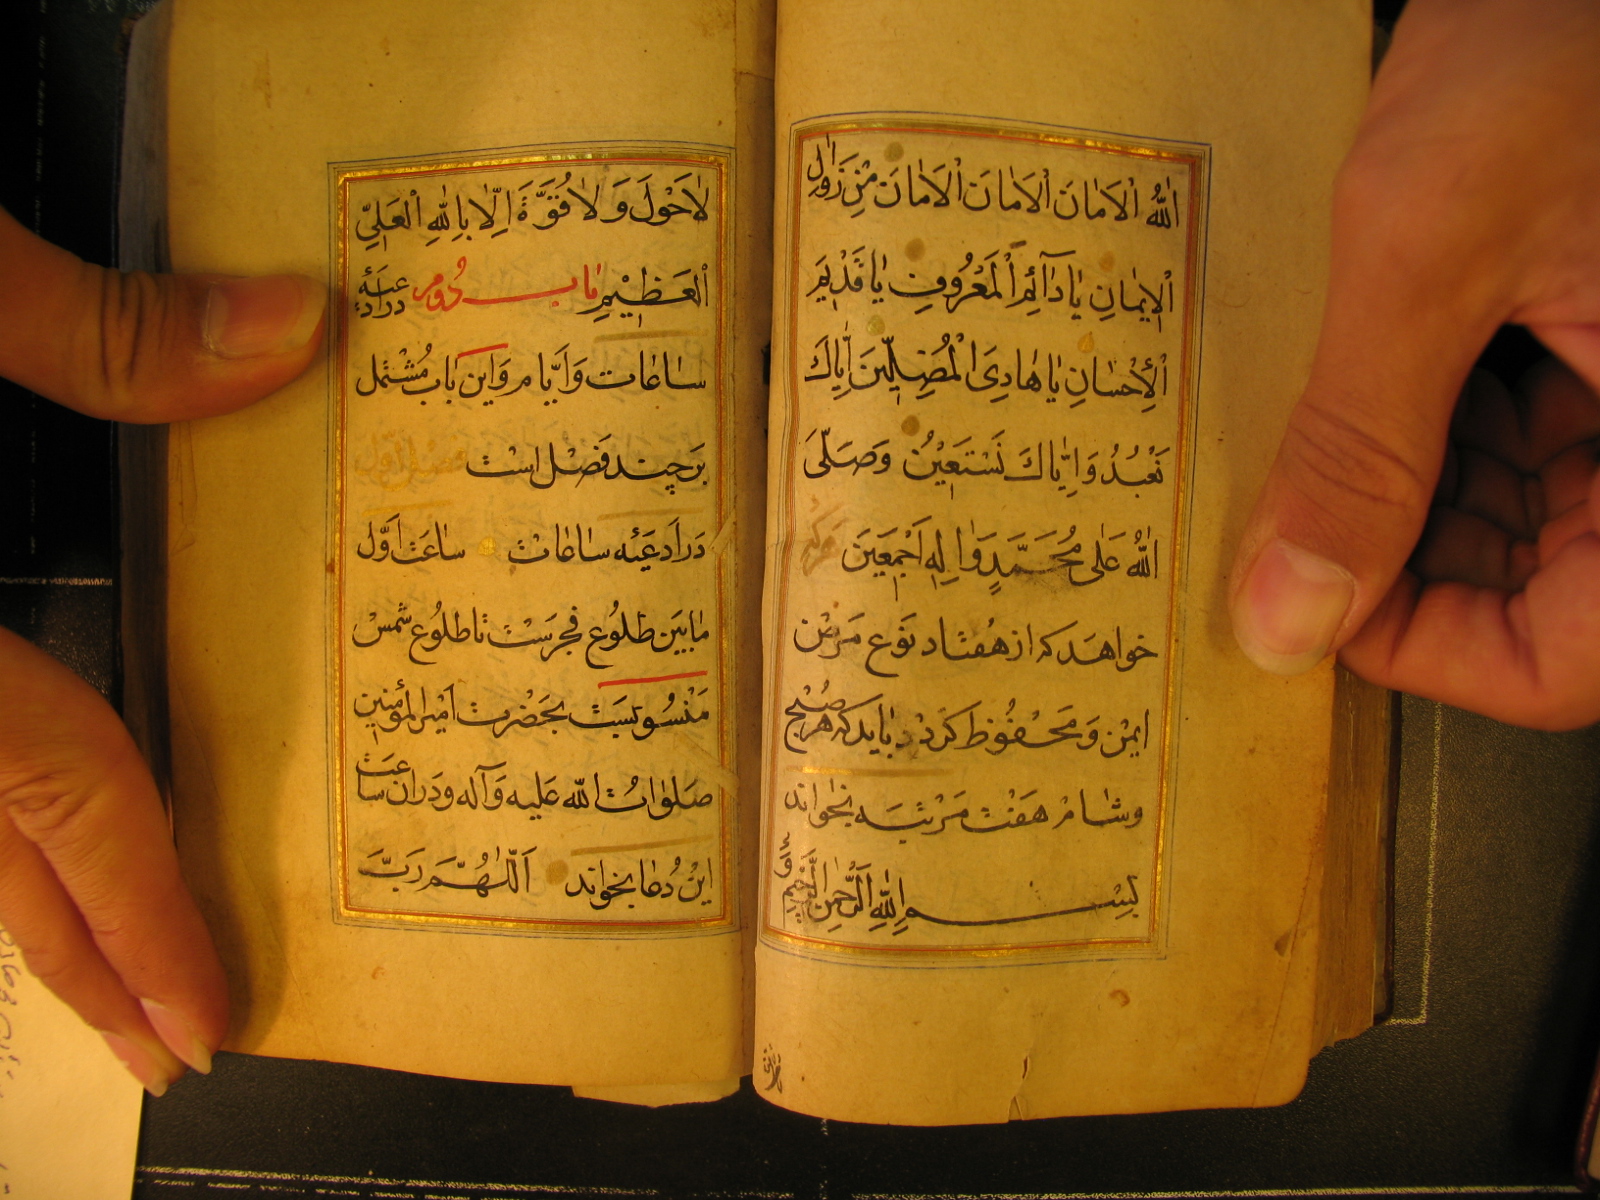 اَللّٰهُ اَلْاَمَانَ اَلْاَمَانَ اَلْاَمَانَ مِنْ زَوَالِ
اَلْاِیمَانِ یَا دَآئِمَ الْمَعْرُوفِ یَا قَدِیمَ
اَلْاِحْسَانِ یَا هَادِیَ الْمُضِلِّینَ اِیَّاكَ
نَعْبُدُ وَاِیَّاكَ نَسْتَعِیْنُ وَصَلَّی
اللّٰهُ عَلٰی مُحَمَّدٍ وَاٰلِهٖ اَجْمَعِینَ هرکه
خواهد که از هفتاد نوع مرض
ایمن و محفوظ کردد باید که هر صبح
و شام هفت مرتبه بخواند
بِسْمِ اللّٰهِ الرَّحْمٰنِ الرَّحِیمِ وَ
لَاحَوْلَ وَلَا قُوَّةَ اِلَّا بِاللّٰهِ الْعَلِیِّ
الْعَظِیْمِ باب دُوم در ادعیۀ
ساعات و ایام و این باب مشتمل
بر چند فصل است فصل اول
در ادعیه ساعات ساعت اَوّل
مابین طلوع فجرست تا طلوع شمس
منسوبست بحضرت امیرالمؤمنین
صلوات الله علیه وآله و در ان ساعت
این دعا بخواند اَللّٰهُمَّ رَبَّ